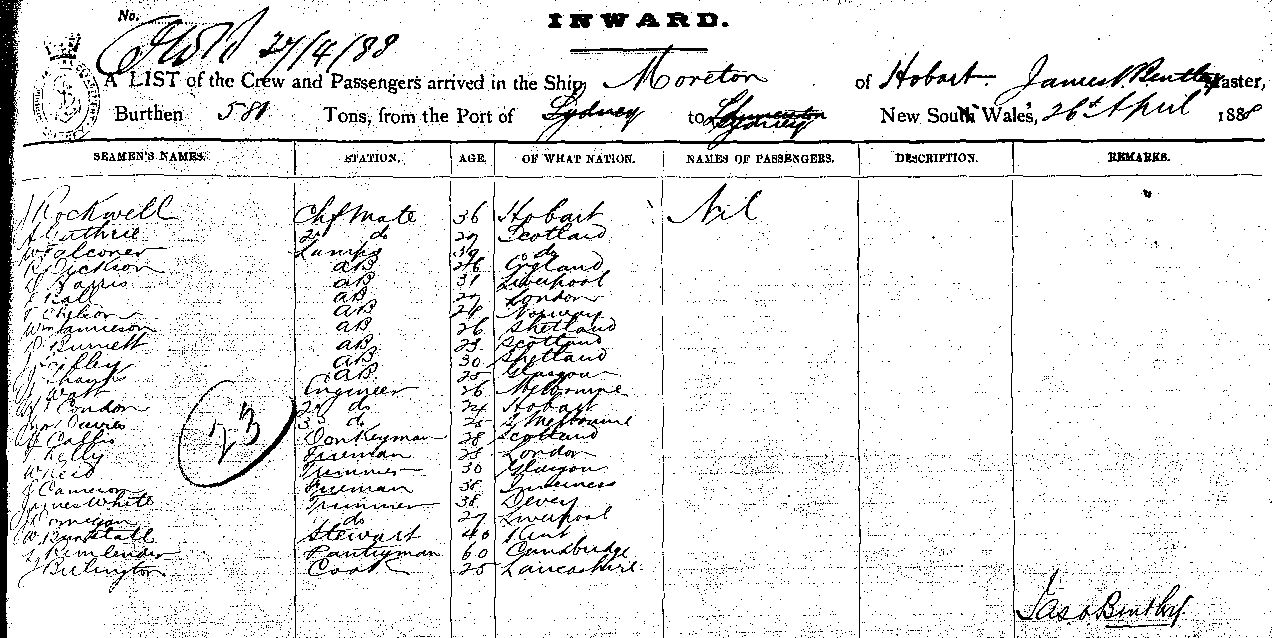 No.
INWARD.
27/4/88
A LIST of the Crew and Passengers arrived in the Ship Moreton of Hobart James Bentley Master,
Burthen 581 Tons, from the Port of Sydney to Sydney New South Wales, 26th April 1888
SEAMEN'S NAMES. STATION. AGE. OF WHAT NATION. NAMES OF PASSENGERS. DESCRIPTION. REMARKS.
J Rockwell Chf Mate 36 Hobart Nil
J Guthrie 2nd do 27 Scotland
W Falconer Lamps 39 do
R Dickson AB 26 England
Harris AB 31 Liverpool
J Ball AB 27 London
AB 24 Norway
Wm Jamieson AB 26 Shetland
Burnett AB 23 Scotland
AB 30 Shetland
AB 25 Glasgow
J Watt Engineer 26 Melbourne
Condon 2nd do 24 Hobart
Jno Davies 3rd do 25 Melbourne
Donkeyman 28 Scotland
Kelly Fireman 25 London
W Reid Trimmer 30 Glasgow
J Cameron Fireman 38 Inverness
James White Trimmer 38
do 27 Liverpool
W Stewart 40 Kent
Pantryman 60 Cambridge
J Burlington Cook 25 Lancashire
23
Jas Bentley